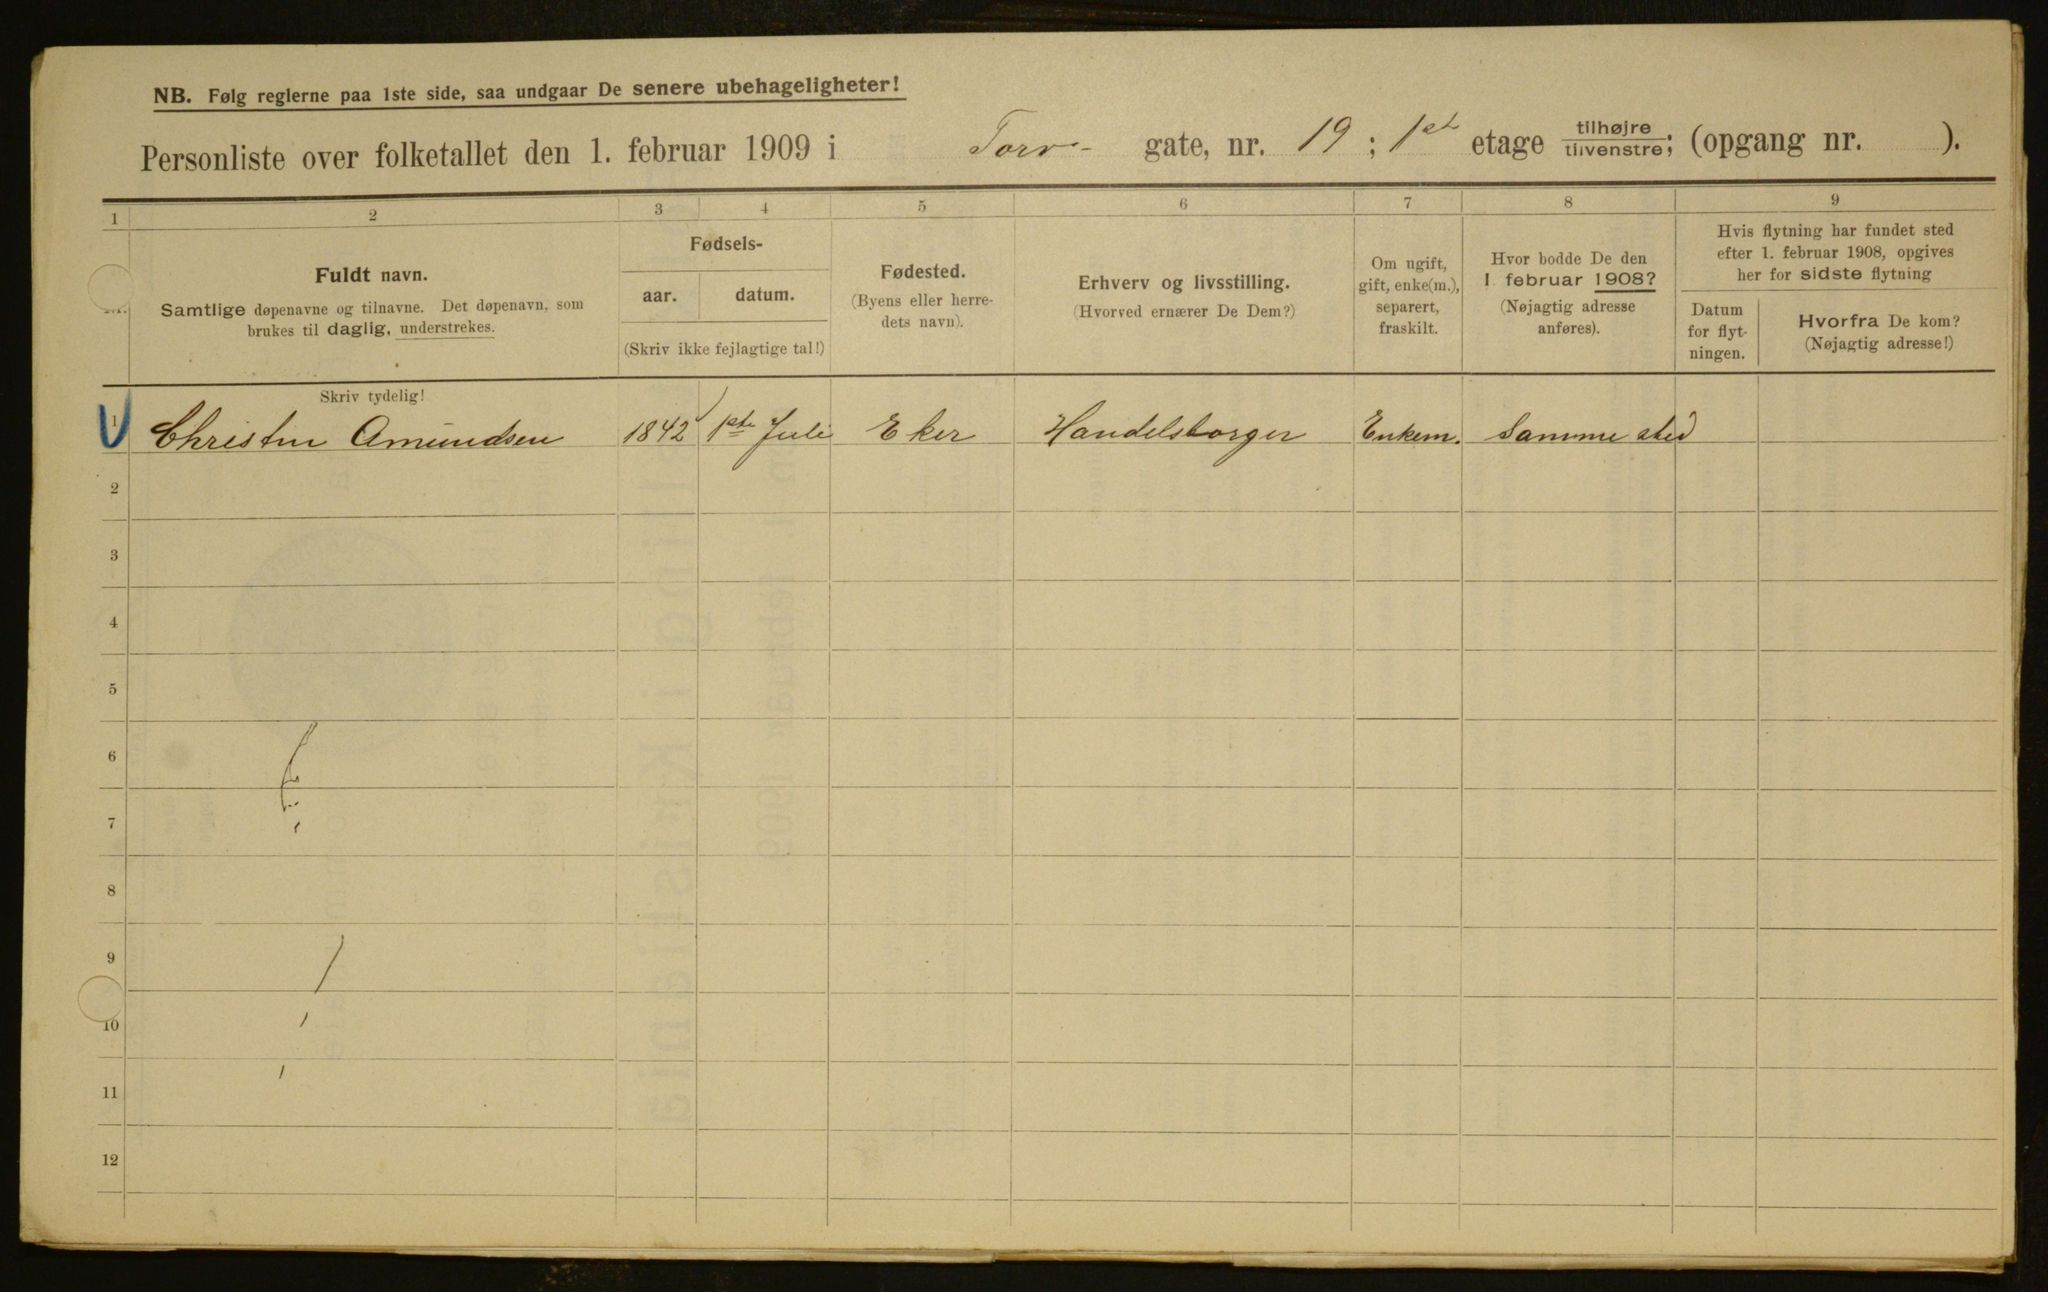 NB. Følg reglerne paa 1ste side, saa undgaar De senere ubehageligheter!
Personliste over folketallet den 1. februar 1909 i Torv- gate, nr. 19 ; 1st etage tilhøjre tilvenstre; (opgang nr. ).
1 2 3 4 5 6 7 8 9
Fuldt navn.
Samtlige døpenavne og tilnavne. Det døpenavn, som
brukes til daglig, understrekes.
Fødsels-
aar. datum.
(Skriv ikke fejlagtige tal!)
Fødested.
(Byens eller herre-
dets navn).
Erhverv og livsstilling.
(Hvorved ernærer De Dem?)
Om ugift,
gift, enke(m.),
separert,
fraskilt.
Hvor bodde De den
1. februar 1908?
(Nøjagtig adresse
anføres).
Hvis flytning har fundet sted
efter 1. februar 1908, opgives
her for sidste flytning
Datum
for flyt-
ningen.
Hvorfra De kom?
(Nøjagtig adresse!)
Skriv tydelig!
1 Christin Amundsen 1842 1ste Juli Eker Handelsborger Enkem. Samme sted
2
3
4
5
6
7
8
9
10
11
12